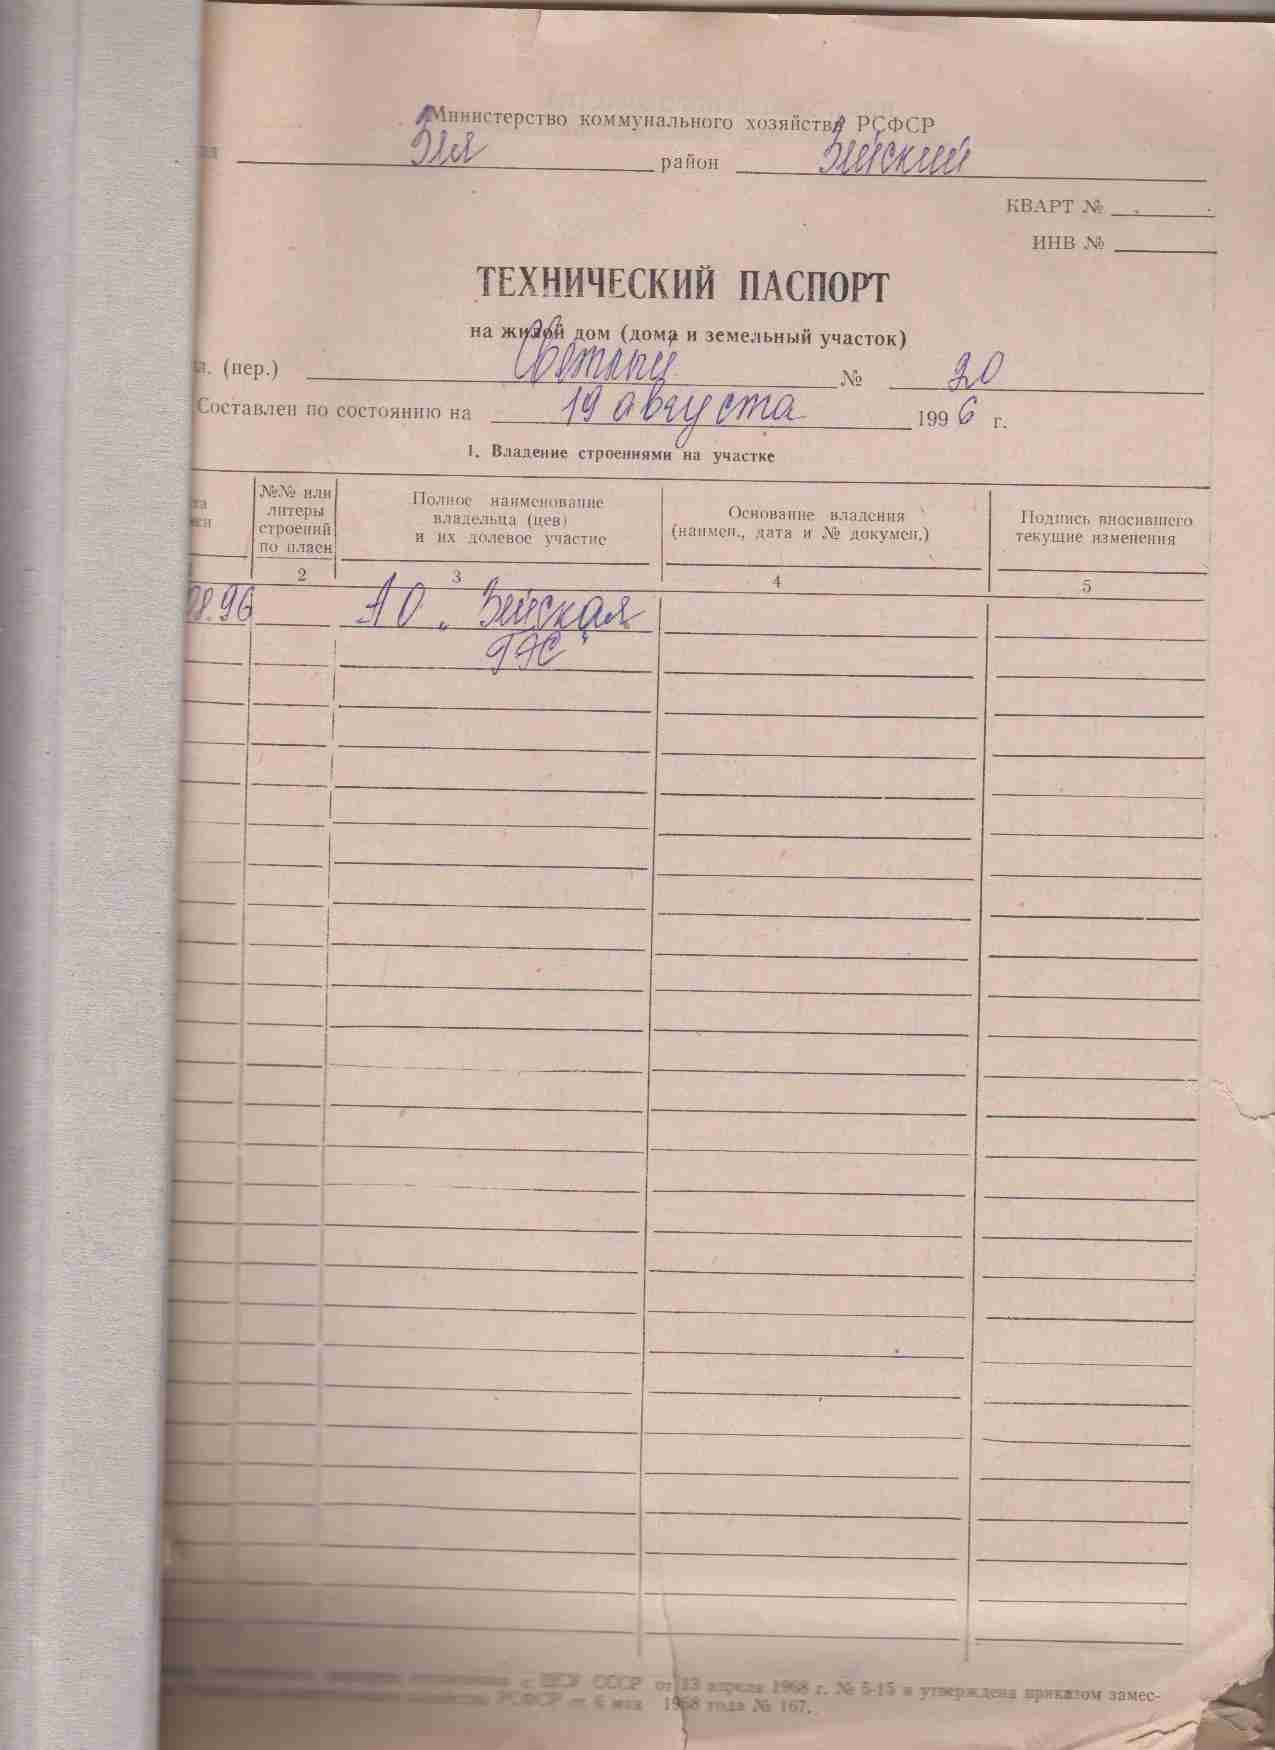 Министерство коммунального хозяйства РСФСР
Зея район Зейский
КВАРТ №
ИНВ №
ТЕХНИЧЕСКИЙ ПАСПОРТ
на жилой дом (дома и земельный участок)
л. (пер.) Светлый № 20
Составлен по состоянию на 19 августа 1996 г.
1. Владение строениями на участке
№№ или литеры строений по плаен
Полное наименование владельца (цев) и их долевое участие
Основание владения (наимен., дата и № докумен.)
Подпись вносившего текущие изменения
2 3 4 5
08.96 АО „Зейская
ГЭС"
с ЦСУ СССР от 13 апреля 1968 г. № 5-15 и утверждена приказом замес-
РСФСР от 6 мая 1968 года № 167.